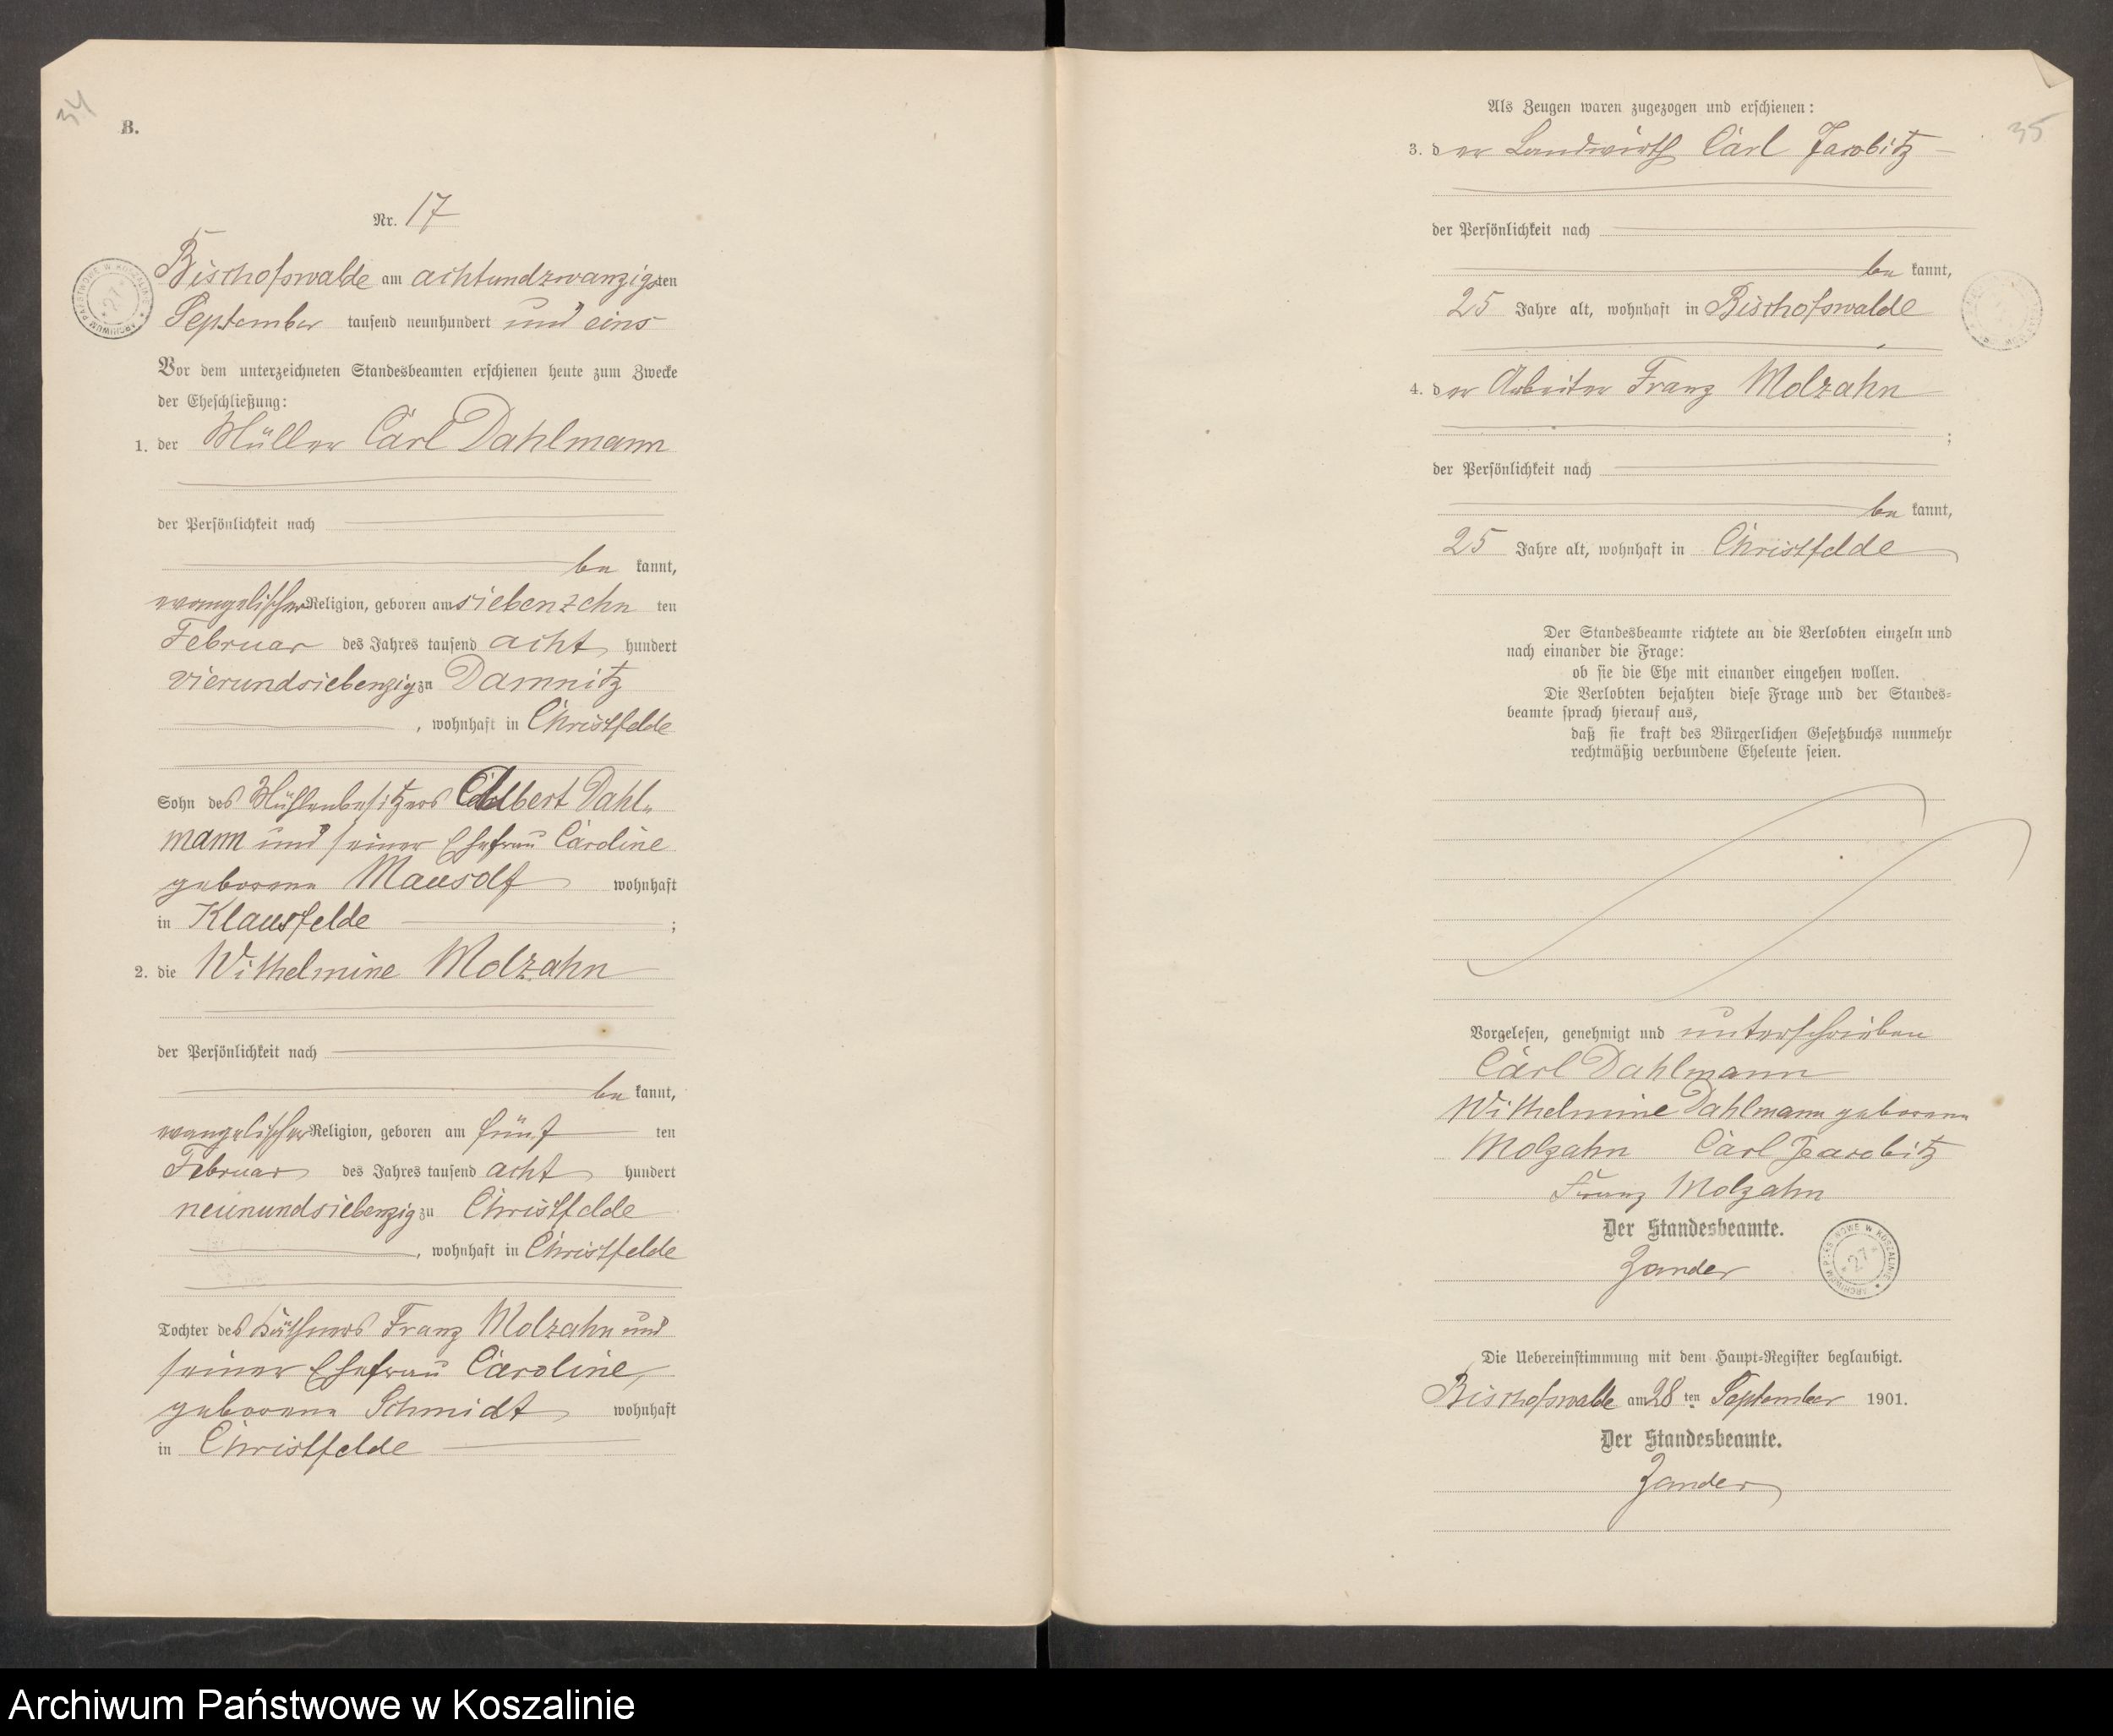 34
B.
Nr. 17
Bischofswalde am achtundzwanzigsten
September tausend neunhundert und eins
Vor dem unterzeichneten Standesbeamten erschienen heute zum Zwecke
der Eheschließung:
1. der Müller Carl Dahlmann
der Persönlichkeit nach
be kannt,
evangelischer Religion, geboren am siebenzehn ten
Februar des Jahres tausend acht hundert
vierundsiebenzig zu Damnitz
, wohnhaft in Christfelde
Sohn des Mühlenbesitzers Albert Dahl-
mann und seiner Ehefrau Caroline
geborene Mausolf wohnhaft
in Klausfelde ;
2. die Wilhelmine Molzahn
der Persönlichkeit nach
be kannt,
evangelischer Religion, geboren am fünf ten
Februar des Jahres tausend acht hundert
neunundsiebenzig zu Christfelde
, wohnhaft in Christfelde
Tochter des Käthners Franz Molzahn und
seiner Ehefrau Caroline,
geborene Schmidt wohnhaft
in Christfelde
ARCHIWUM PAŃSTWOWE W KOSZALINIE
27
35
Als Zeugen waren zugezogen und erschienen:
3. der Landwirth Carl Jacobitz
der Persönlichkeit nach
be kannt,
25 Jahre alt, wohnhaft in Bischofswalde
4. der Arbeiter Franz Molzahn
;
der Persönlichkeit nach
be kannt,
25 Jahre alt, wohnhaft in Christfelde
Der Standesbeamte richtete an die Verlobten einzeln und
nach einander die Frage:
ob sie die Ehe mit einander eingehen wollen.
Die Verlobten bejahten diese Frage und der Standes-
beamte sprach hierauf aus,
daß sie kraft des Bürgerlichen Gesetzbuchs nunmehr
rechtmäßig verbundene Eheleute seien.
Vorgelesen, genehmigt und unterschrieben
Carl Dahlmann
Wilhelmine Dahlmann geborene
Molzahn Carl Jacobitz
Franz Molzahn
Der Standesbeamte.
Zander
ARCHIWUM PAŃSTWOWE W KOSZALINIE
27
Die Uebereinstimmung mit dem Haupt-Register beglaubigt.
Bischofswalde am 28 ten September 1901.
Der Standesbeamte.
Zander
Archiwum Państwowe w Koszalinie